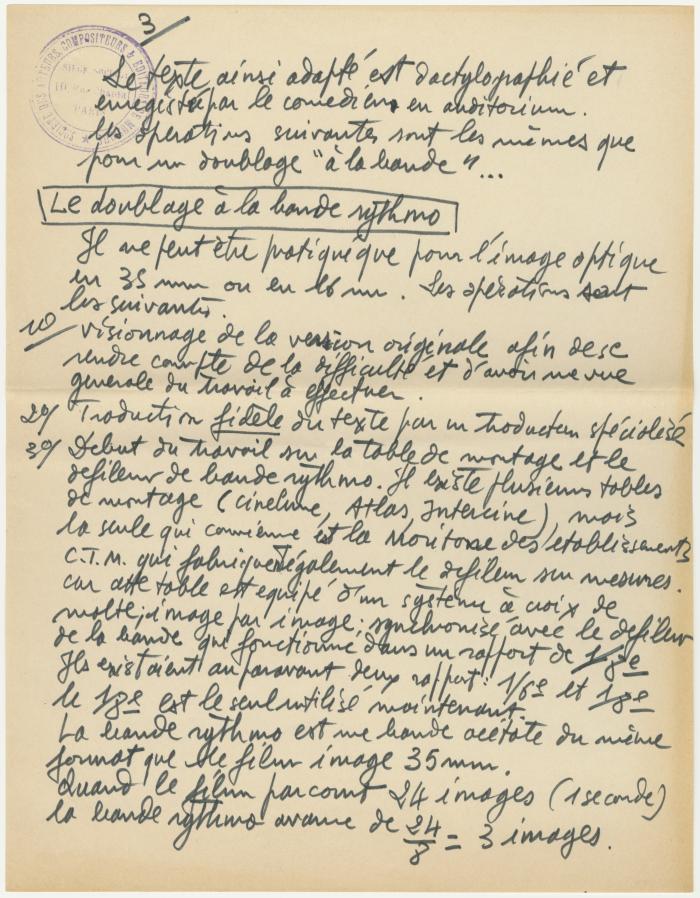 3/
SOCIÉTÉ DES AUTEURS, COMPOSITEURS & EDITEURS DE MUSIQUE
SIEGE SOCIAL
10 Rue
PARIS
Le texte ainsi adapté est dactylographié et
enregistré par le comédien en auditorium.
les opérations suivantes sont les mêmes que
pour un doublage "à la bande"...
Le doublage à la bande rythmo
Il ne peut être pratiqué que pour l'image optique
en 35 mm ou en 16 mm. Les opérations sont
les suivantes.
10/ visionnage de la version originale afin de se
rendre compte de la difficulté et d'avoir une vue
generale du travail à effectuer.
20/ Traduction fidèle du texte par un traducteur spécialisé
30/ Debut du travail sur la table de montage et le
defileur de bande rythmo. Il existe plusieurs tables
de montage (cinelume, Atlas, Intercine), mais
la seule qui convienne est la Moritone des etablissements
C.T.M. qui fabrique également le defileur sur mesures.
car cette table est equipé d'un système à croix de
malte; image par image; synchronisé avec le defileur
de la bande qui fonctionne dans un rapport de 1/8e
Ils existaient auparavant deux rapport: 1/6e et 1/8e
le 1/8e est le seul utilisé maintenant.
La bande rythmo est une bande acétate du même
format que le film image 35 mm.
Quand le film parcourt 24 images (1 seconde)
la bande rythmo avance de 24/8 = 3 images.